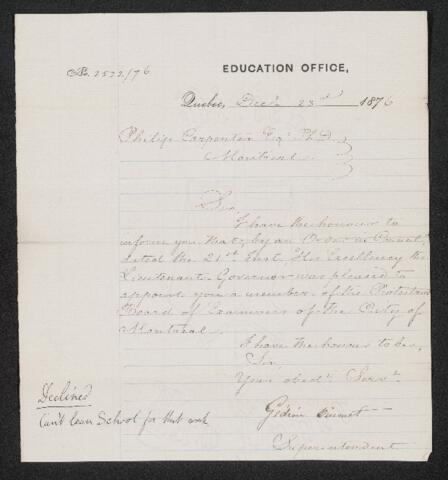 No. 2522/76
EDUCATION OFFICE,
Quebec, Decr 23rd 1876
Philip Carpenter Esqr Ph.D
Montreal.
Sir,
I have the honour to
inform you that, by an Order in Council,
dated the 21st inst. His Excellency the
Lieutenant-Governor was pleased to
appoint you a member of the Protestant
Board of Examiners of the City of
Montreal.
I have the honour to be,
Sir,
Your obedt. Servt.
Gédéon Ouimet
Superintendent
Declined
Can't leave School for that work